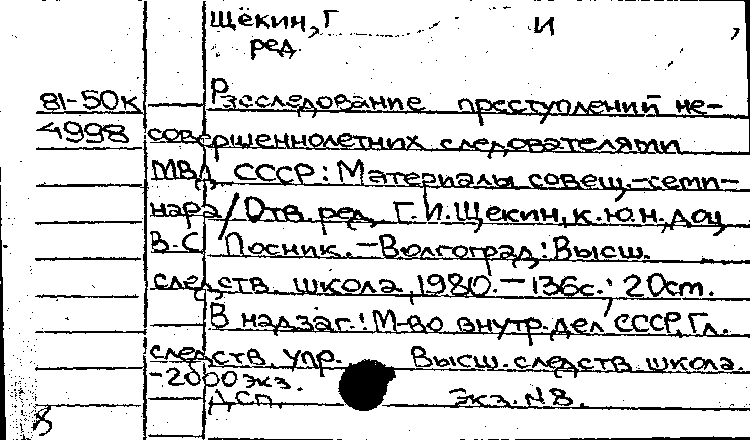 Щёкин, Г И
ред.
81-50к Расследование преступлений не-
4998 совершеннолетних следователями
МВД СССР: Материалы совещ.-семи-
нара / Отв. ред. Г.И.Щекин, к.ю.н., доц.
В.С. Посник. – Волгоград: Высш.
следств. школа, 1980. – 136с.; 20см.
В надзаг.: М-во внутр. дел СССР, Гл.
следств. упр. Высш. следств. школа.
-2000 экз.
ДСП. Экз. N8.
8